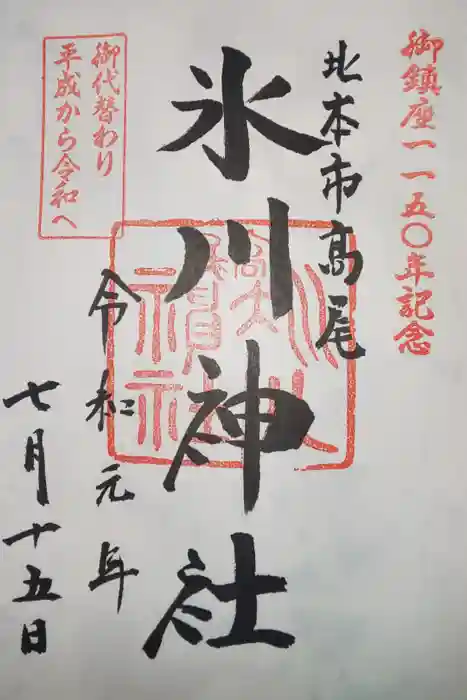 御鎮座一一五〇年記念
北本市高尾
氷川神社
御代替わり
平成から令和へ
令和元年
七月十五日